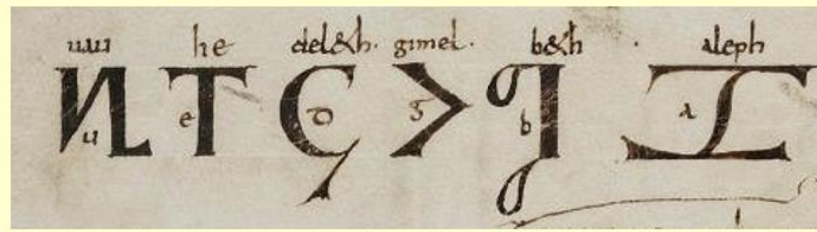 uau he del&h. gimel. b&h . aleph
u e d g b a